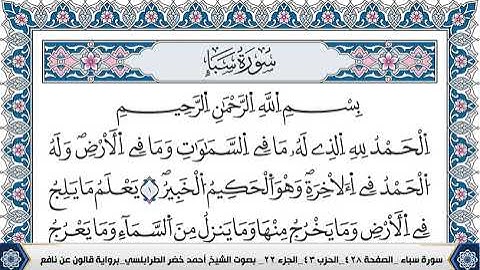 سورة سبإ
بسم الله الرحمن الرحيم
الحمد لله الذے له ما في السماوات وما في الأرض وله
الحمد في الآخرة وهو الحكيم الخبير ۝١ يعلم ما يلج
في الأرض وما يخرج منها وما ينزل من السماء وما يعرج
سورة سباء _الصفحة ٤٢٨_الحزب ٤٣_الجزء ٢٢_ بصوت الشيخ أحمد خضر الطرابلسي_برواية قالون عن نافع